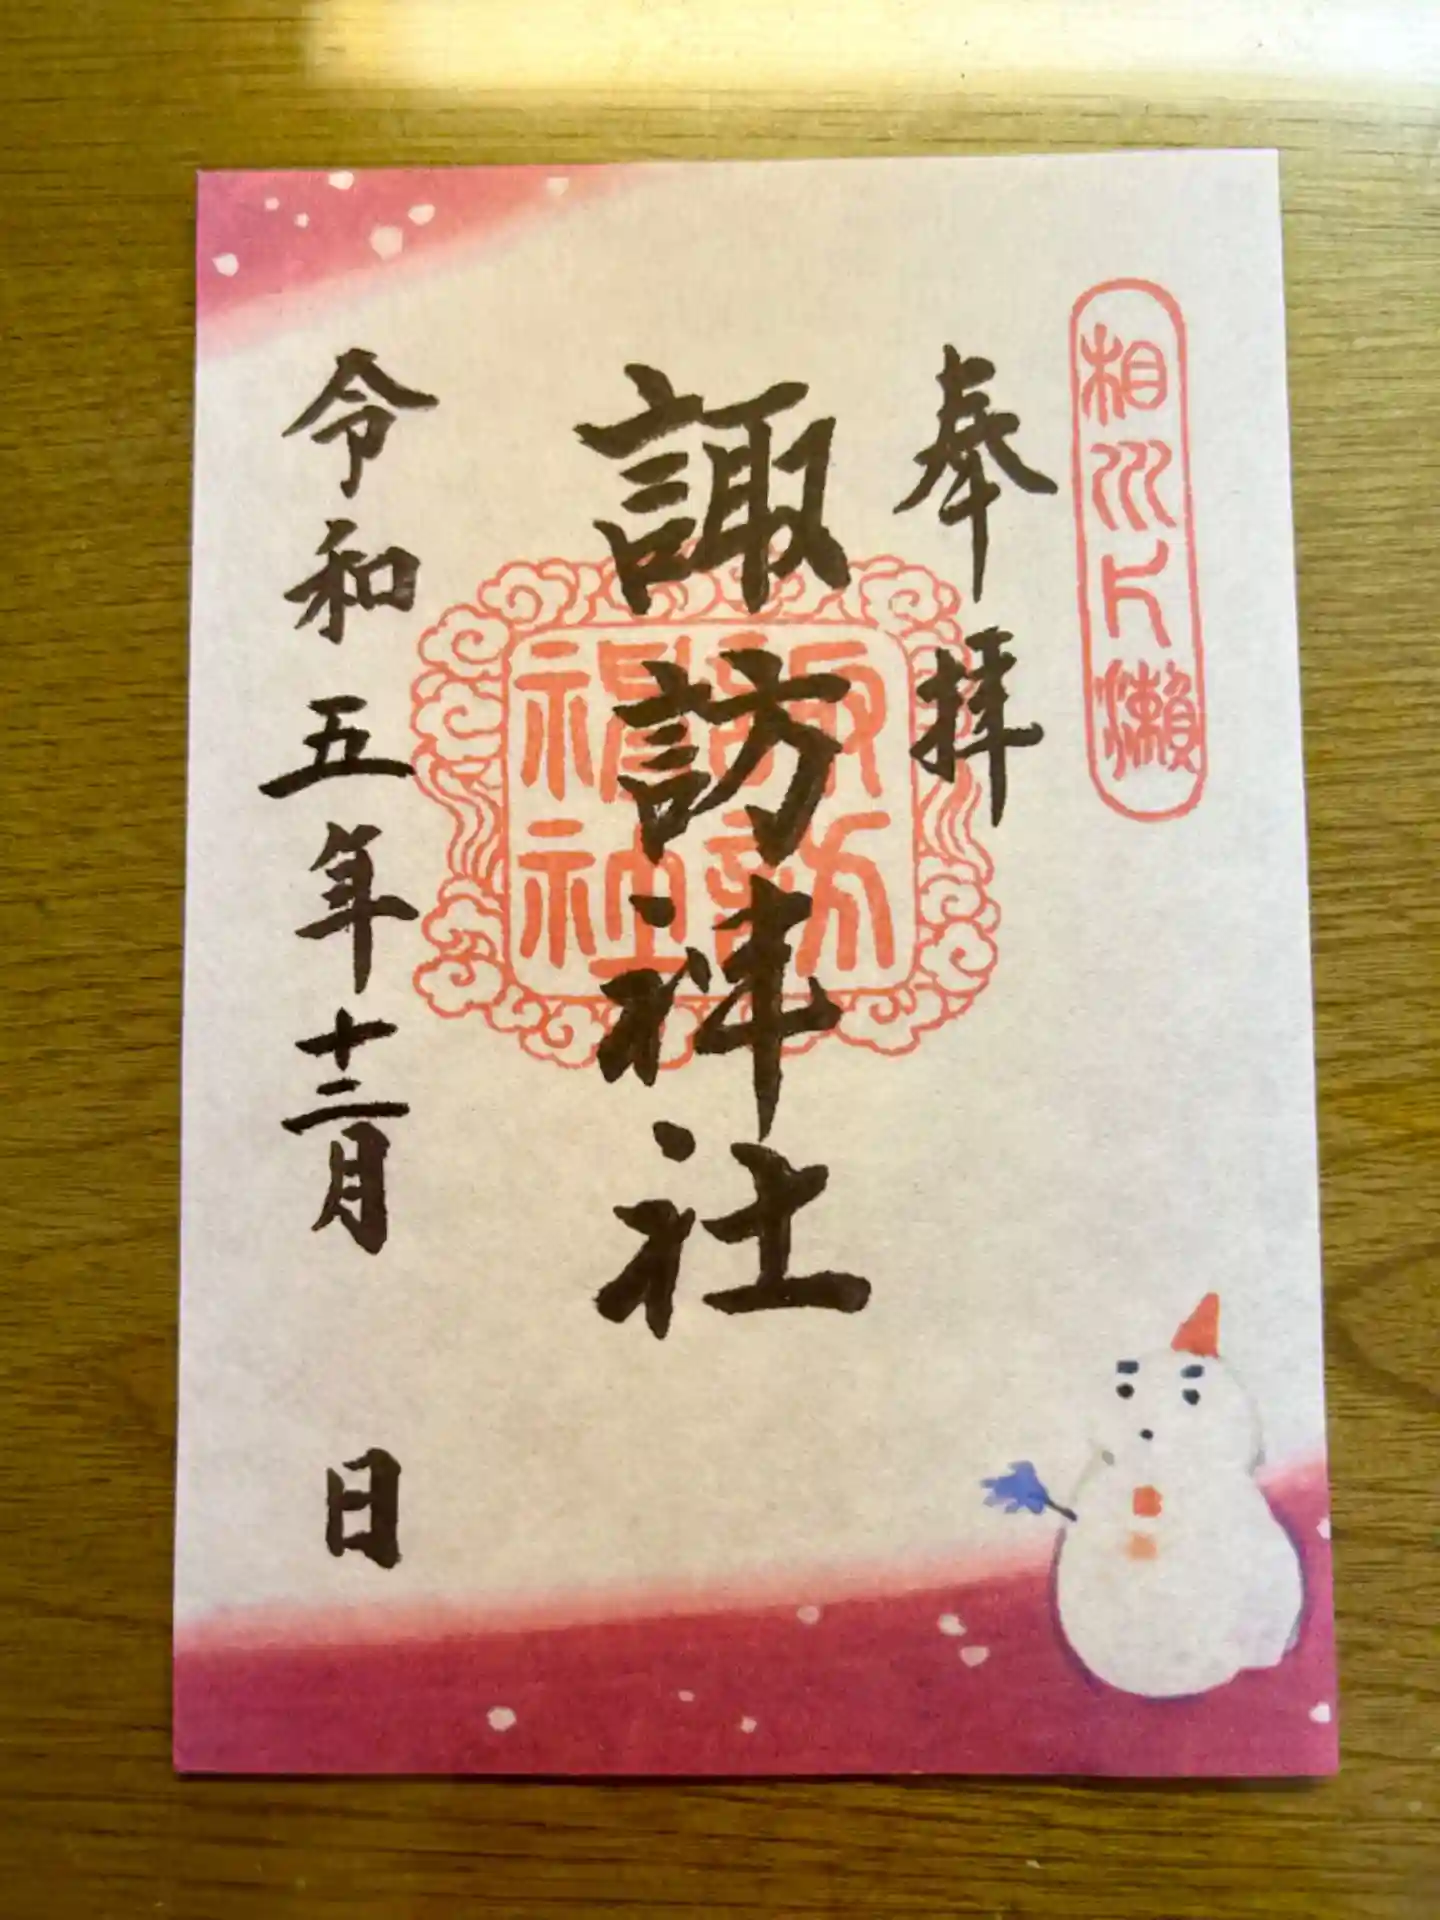 相州片瀬
奉拝
諏訪神社
諏訪
神社
令和五年十二月 日